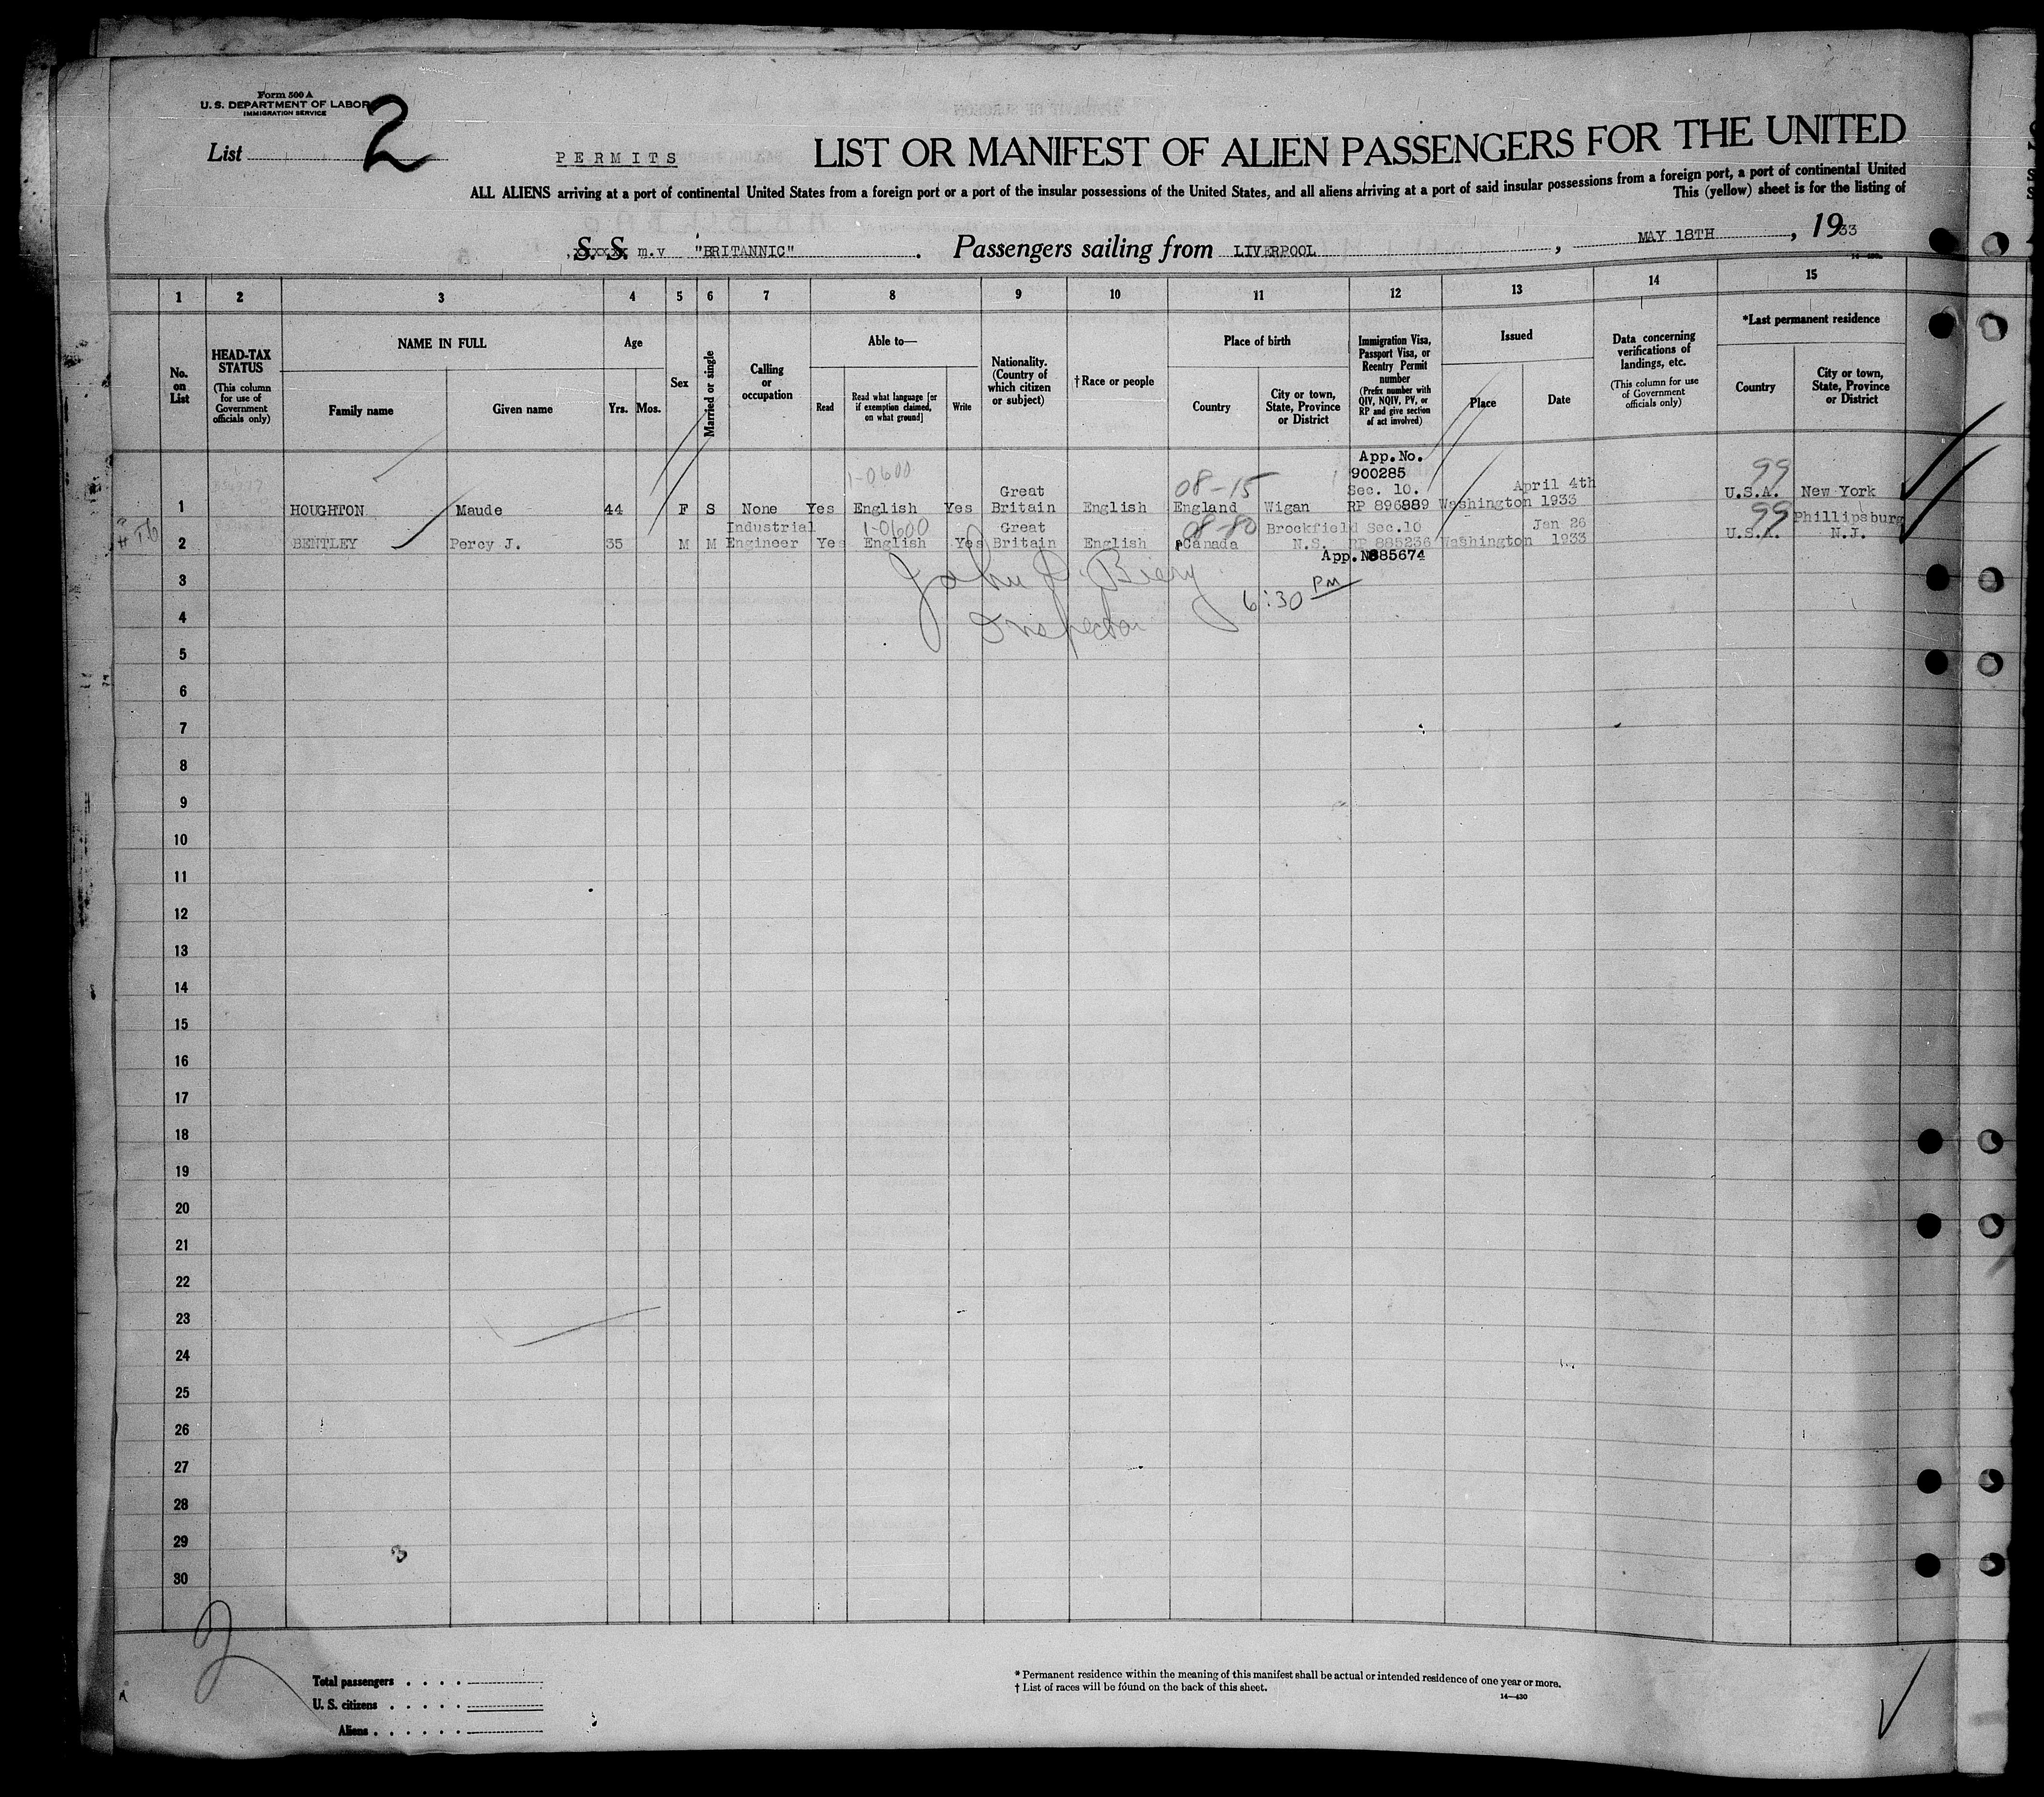 Form 500 A
U. S. DEPARTMENT OF LABOR
IMMIGRATION SERVICE
List 2
PERMITS
LIST OR MANIFEST OF ALIEN PASSENGERS FOR THE UNITED
ALL ALIENS arriving at a port of continental United States from a foreign port or a port of the insular possessions of the United States, and all aliens arriving at a port of said insular possessions from a foreign port, a port of continental United
This (yellow) sheet is for the listing of
S. S. m.v "BRITANNIC" . Passengers sailing from LIVERPOOL , MAY 18TH , 1933
1 2 3 4 5 6 7 8 9 10 11 12 13 14 15
No. on List
HEAD-TAX STATUS
(This column for use of Government officials only)
NAME IN FULL
Family name
Given name
Age
Yrs. Mos.
Sex
Married or single
Calling or occupation
Able to—
Read
Read what language [or if exemption claimed, on what ground]
Write
Nationality. (Country of which citizen or subject)
†Race or people
Place of birth
Country
City or town, State, Province or District
Immigration Visa, Passport Visa, or Reentry Permit number
(Prefix number with QIV, NQIV, PV, or RP and give section of act involved)
Issued
Place
Date
Data concerning verifications of landings, etc.
(This column for use of Government officials only)
*Last permanent residence
Country
City or town, State, Province or District
App. No.
1-0600 900285 99
Great 08-15 Sec. 10. April 4th U.S.A. New York
1 HOUGHTON Maude 44 F S None Yes English Yes Britain English England Wigan RP 896889 Washington 1933
Industrial 1-0600 Great 08-80 Brockfield Sec.10 Jan 26 99 Phillipsburg
2 BENTLEY Percy J. 35 M M Engineer Yes English Yes Britain English Canada N.S. RP 885236 Washington 1933 U.S.A. N.J.
App.N885674
John D. Biery
6:30 PM
Inspector
3
4
5
6
7
8
9
10
11
12
13
14
15
16
17
18
19
20
21
22
23
24
25
26
27
28
29
3
30
2
Total passengers
U. S. citizens
Aliens
* Permanent residence within the meaning of this manifest shall be actual or intended residence of one year or more.
† List of races will be found on the back of this sheet.
14—430